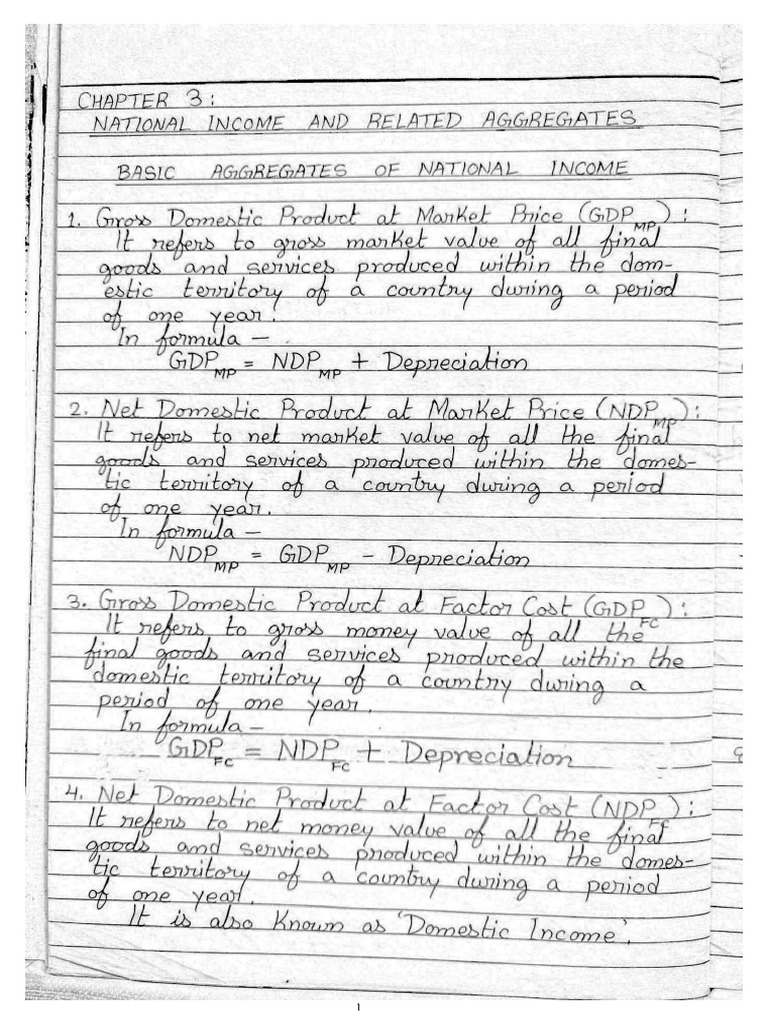 CHAPTER 3:
NATIONAL INCOME AND RELATED AGGREGATES
BASIC AGGREGATES OF NATIONAL INCOME
1. Gross Domestic Product at Market Price (GDP MP):
It refers to gross market value of all final
goods and services produced within the dom-
estic territory of a country during a period
of one year.
In formula –
GDP MP = NDP MP + Depreciation
2. Net Domestic Product at Market Price (NDP MP):
It refers to net market value of all the final
goods and services produced within the domes-
tic territory of a country during a period
of one year.
In formula –
NDP MP = GDP MP – Depreciation
3. Gross Domestic Product at Factor Cost (GDP FC):
It refers to gross money value of all the
final goods and services produced within the
domestic territory of a country during a
period of one year.
In formula –
GDP FC = NDP FC + Depreciation
4. Net Domestic Product at Factor Cost (NDP FC):
It refers to net money value of all the final
goods and services produced within the domes-
tic territory of a country during a period
of one year.
It is also known as 'Domestic Income'.
1